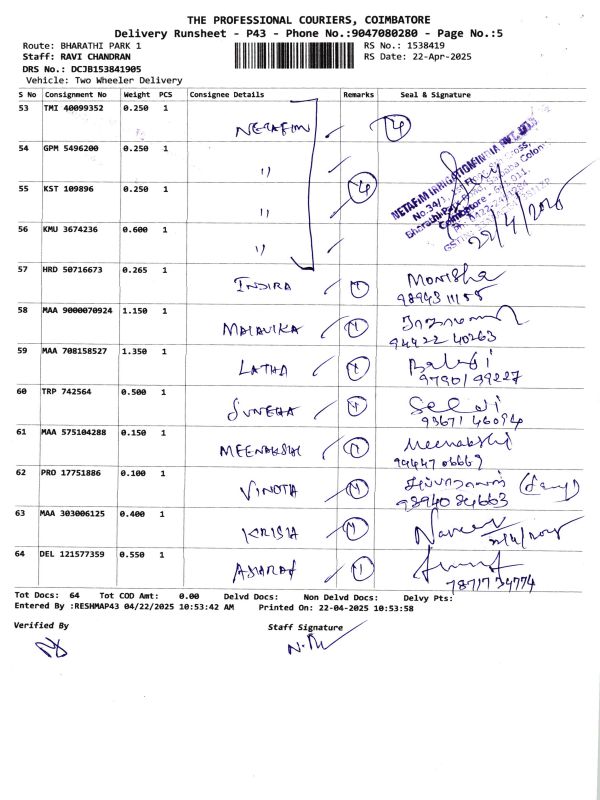 THE PROFESSIONAL COURIERS, COIMBATORE
Delivery Runsheet - P43 - Phone No.:9047080280 - Page No.:5
Route: BHARATHI PARK 1
RS No.: 1538419
Staff: RAVI CHANDRAN
RS Date: 22-Apr-2025
DRS No.: DCJB153841905
Vehicle: Two Wheeler Delivery
S No Consignment No Weight PCS Consignee Details Remarks Seal & Signature
53 TMI 40099352 0.250 1 NETAFIM 4
54 GPM 5496200 0.250 1 "
55 KST 109896 0.250 1 " 4
56 KMU 3674236 0.600 1 "
NETAFIM IRRIGATION INDIA PVT. LTD.
22/4/2025
57 HRD 50716673 0.265 1 INDIRA Monisha
58 MAA 9000070924 1.150 1 MALAVIKA
94422 40263
59 MAA 708158527 1.350 1 LATHA Balaji
97901 99227
60 TRP 742564 0.500 1 SUNEHA
61 MAA 575104288 0.150 1 MEENAKSHI Meenakshi
62 PRO 17751886 0.100 1 VINOTH
98940 84663
63 MAA 303006125 0.400 1 KRISHA Naveen
64 DEL 121577359 0.550 1 ASHARAF
78717 34774
Tot Docs: 64 Tot COD Amt: 0.00 Delvd Docs: Non Delvd Docs: Delvy Pts:
Entered By :RESHMAP43 04/22/2025 10:53:42 AM Printed On: 22-04-2025 10:53:58
Verified By
Staff Signature